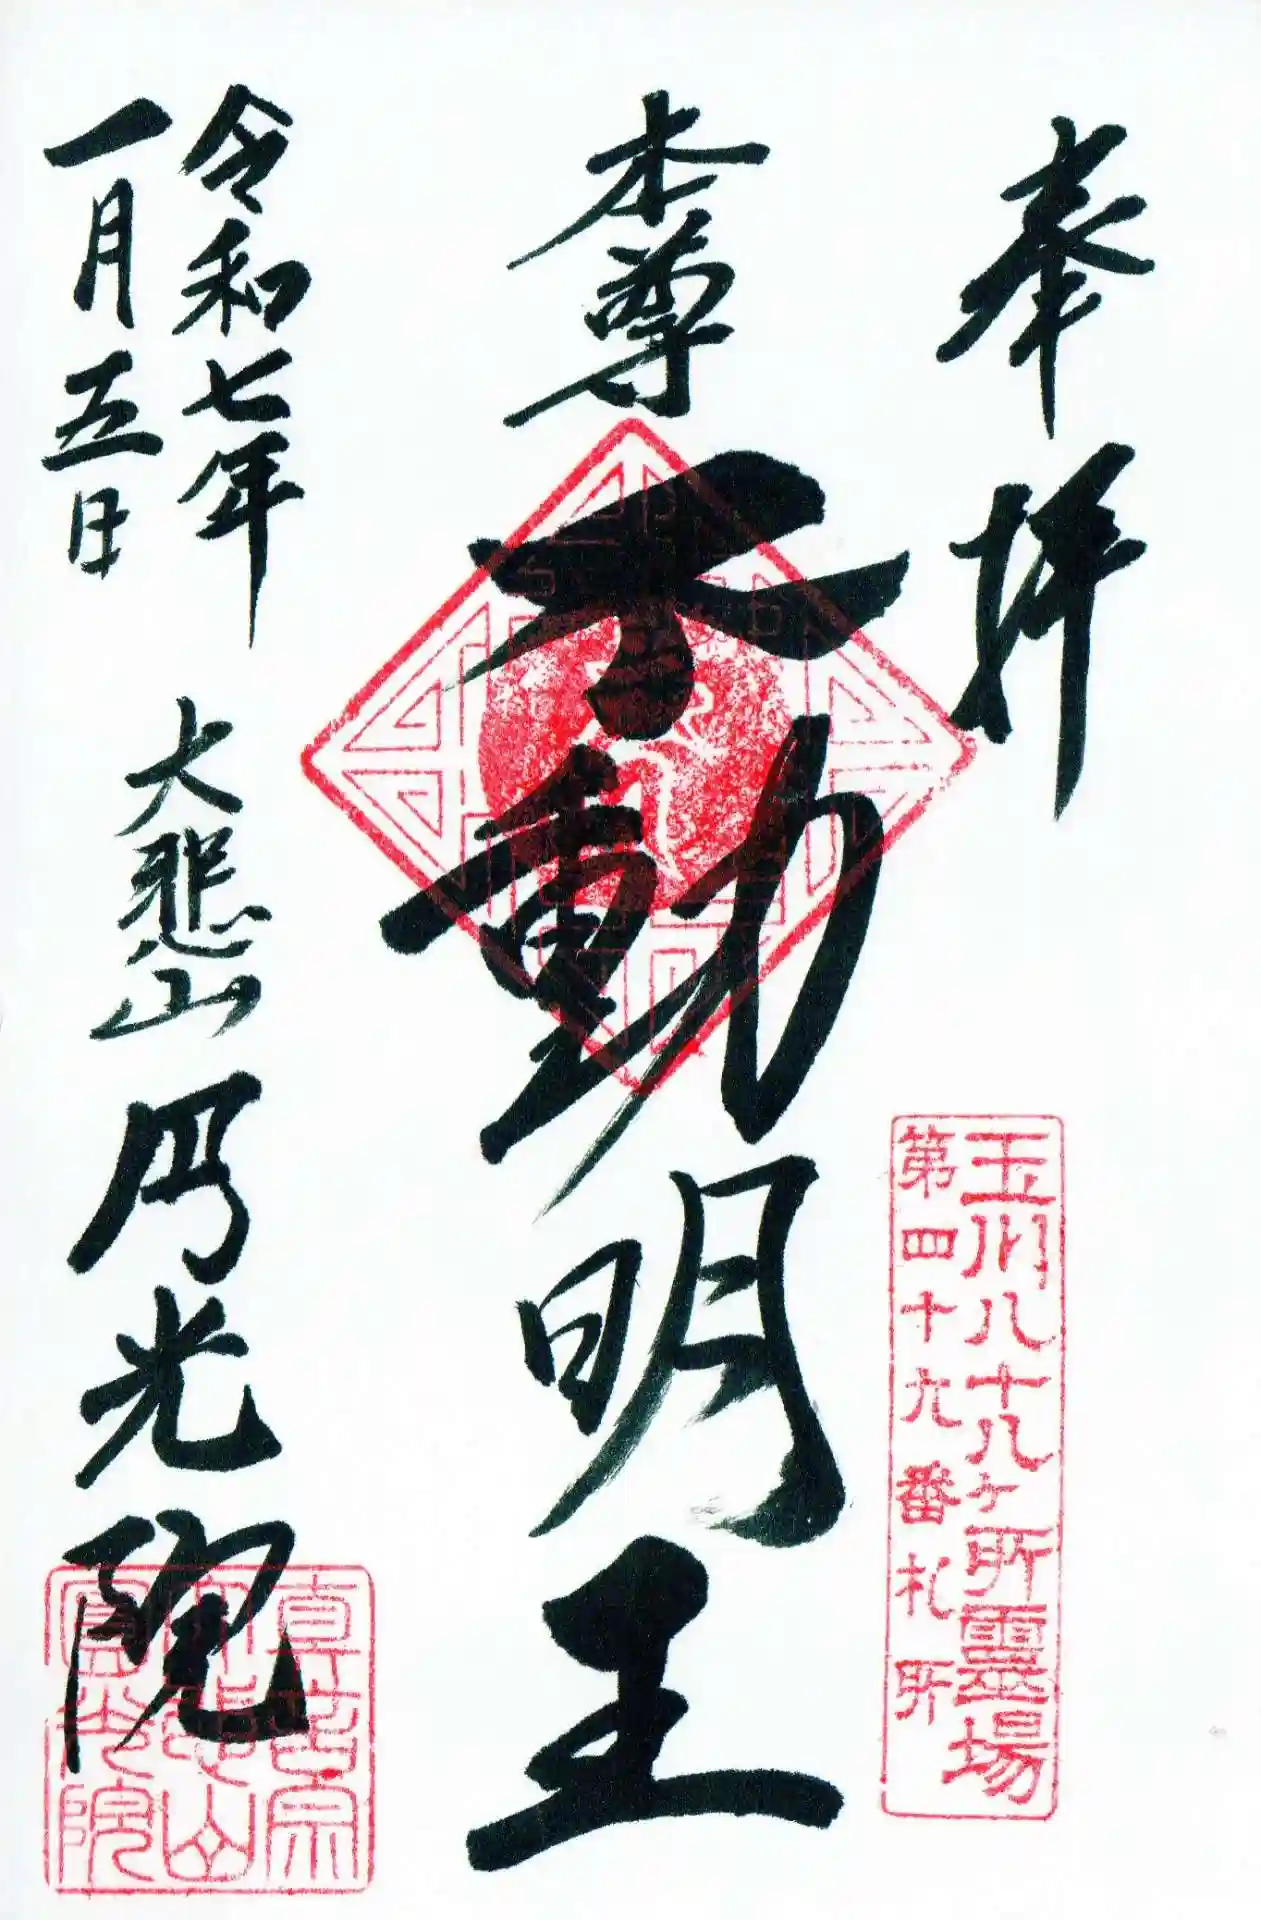 奉拝
玉川八十八ヶ所霊場
第四十九番札所
本尊
不動明王
令和七年
一月五日
大悲山
円光院
真言宗
大悲山
寶光院